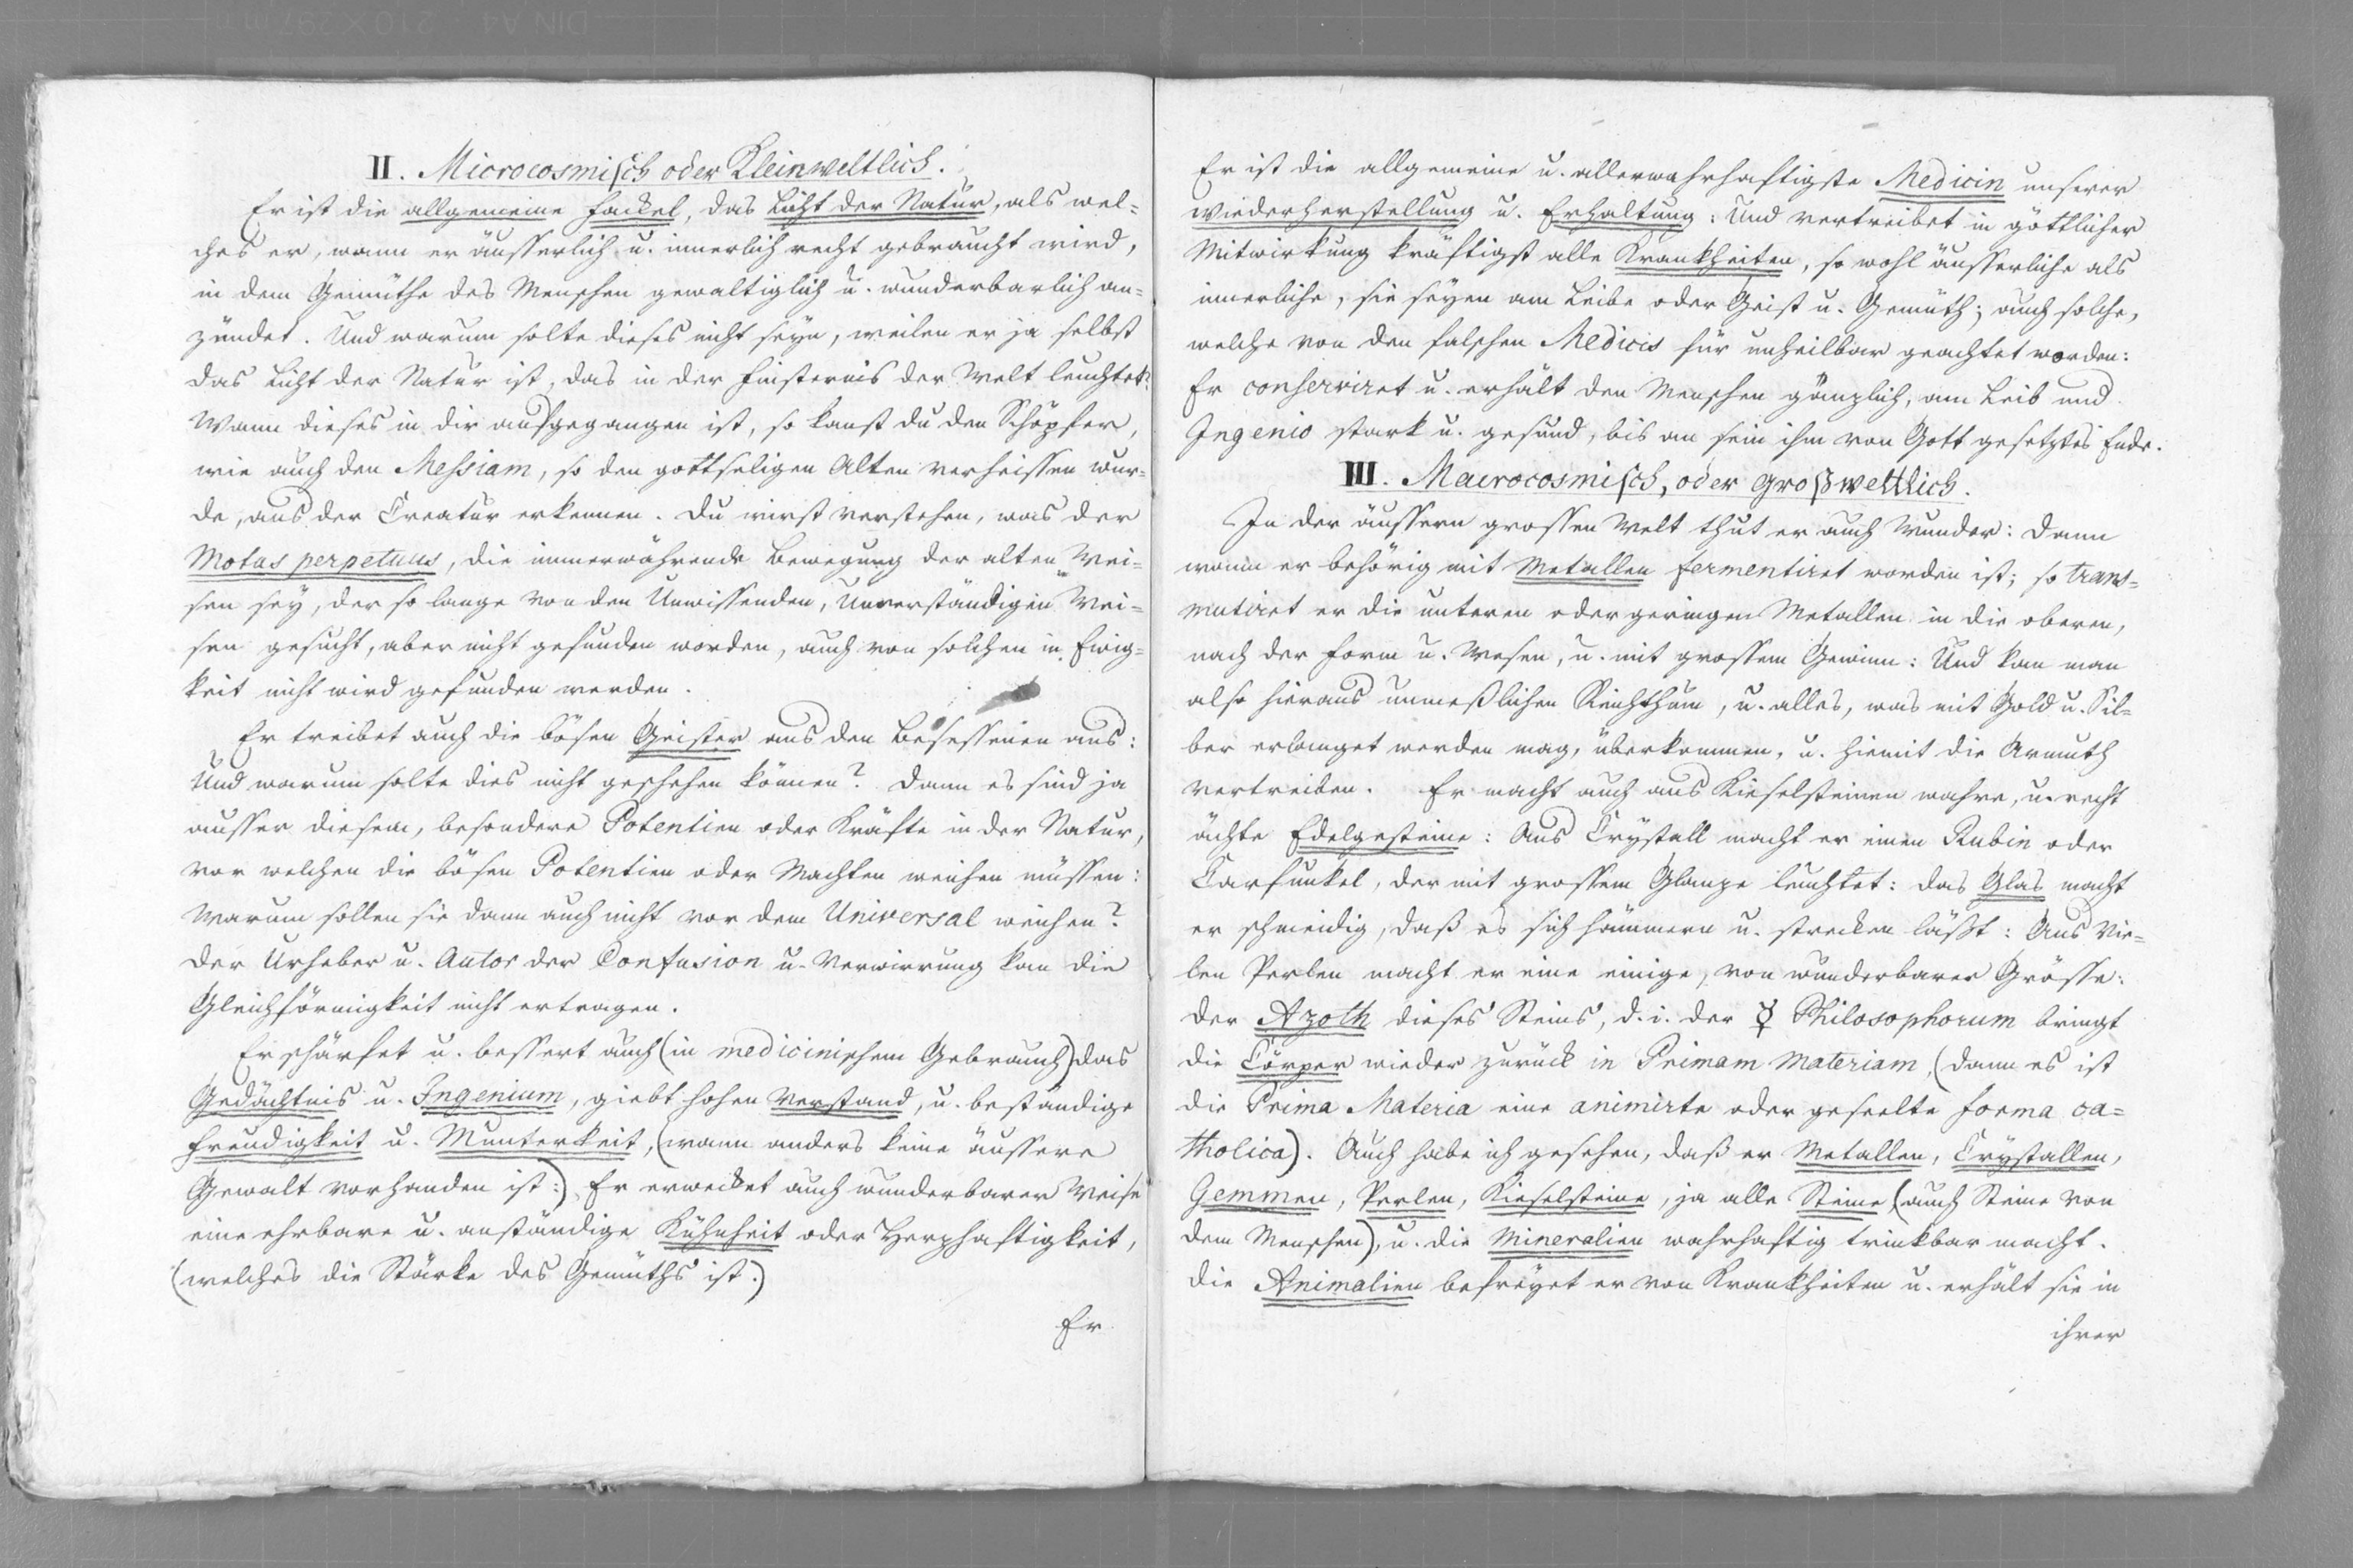 II. Microcosmisch oder Kleinweltlich.
Er ist die allgemeine Fackel, das Licht der Natur, als wel=
ches er, wann er äusserlich u. innerlich recht gebraucht wird,
in dem Gemüthe des Menschen gewaltiglich u. wunderbarlich an=
zündet. Und warum solte dieses nicht seyn, weilen er ja selbst
das Licht der Natur ist, das in der Finsternis der Welt leuchtet?
Wann dieses in dir aufgegangen ist, so kanst du den Schöpfer,
wie auch den Messiam, so den gottseligen Alten verheissen wur=
de, aus der Creatur erkennen. Du wirst verstehen, was der
Motus perpetuus, die immerwährende Bewegung der alten Wei=
sen sey, der so lange von den Unwissenden, Unverständigen Wei=
sen gesucht, aber nicht gefunden worden, auch von solchen in Ewig=
keit nicht wird gefunden werden.
Er treibet auch die bösen Geister aus den Besessenen aus:
Und warum solte dies nicht geschehen können? Dann es sind ja
ausser diesem, besondere Potentien oder Kräfte in der Natur,
vor welchen die bösen Potentien oder Machten weichen müssen:
Warum sollen sie dann auch nicht vor dem Universal weichen?
Der Urheber u. Autor der Confusion u. Verwirrung kan die
Gleichförmigkeit nicht ertragen.
Er schärfet u. bessert auch (in medicinischem Gebrauch) das
Gedächtnis u. Ingenium, giebt hohen Verstand, u. beständige
Freudigkeit u. Munterkeit, (wann anders keine äussere
Gewalt vorhanden ist:) Er erwecket auch wunderbarer Weise
eine ehrbare u. anständige Kühnheit oder Herzhaftigkeit,
(welches die Stärke des Gemüths ist.)
Er
Er ist die allgemeine u. allerwahrhaftigste Medicin unserer
Wiederherstellung u. Erhaltung: Und vertreibet in göttlicher
Mitwirkung kräftigst alle Krankheiten, so wohl äusserliche als
innerliche, sie seyen am Leibe oder Geist u. Gemüth; auch solche,
welche von den falschen Medicis für unheilbar geachtet worden:
Er conserviret u. erhält den Menschen gänzlich, am Leib und
Ingenio stark u. gesund, bis an sein ihm von Gott gesetztes Ende.
III. Macrocosmisch, oder großweltlich.
In der äussern grossen Welt thut er auch Wunder: Dann
wann er behörig mit Metallen fermentiret worden ist; so trans=
mutiret er die unteren oder geringen Metallen in die oberen,
nach der Form u. Wesen, u. mit grossem Gewinn: Und kan man
also hieraus unmeßlichen Reichthum, u. alles, was mit Gold u. Sil=
ber erlanget werden mag, überkommen, u. hiemit die Armuth
vertreiben. Er macht auch aus Kieselsteinen wahre, u. recht
ächte Edelgesteine: Aus Crystall macht er einen Rubin oder
Carfunkel, der mit grossem Glanze leuchtet: das Glas macht
er schmeidig, daß es sich hämmern u. strecken läßt: Aus vie=
len Perlen macht er eine einige, von wunderbarer Grösse:
Der Azoth dieses Steins, d. i. der ☿ Philosophorum bringt
die Cörper wieder zurück in Primam Materiam, (dann es ist
die Prima Materia eine animirte oder geseelte forma ca=
tholica). Auch habe ich gesehen, daß er Metallen, Crystallen,
Gemmen, Perlen, Kieselsteine, ja alle Steine (auch Steine von
dem Menschen), u. die Mineralien wahrhaftig trinkbar macht.
Die Animalien befreyet er von Krankheiten u. erhält sie in
ihrer